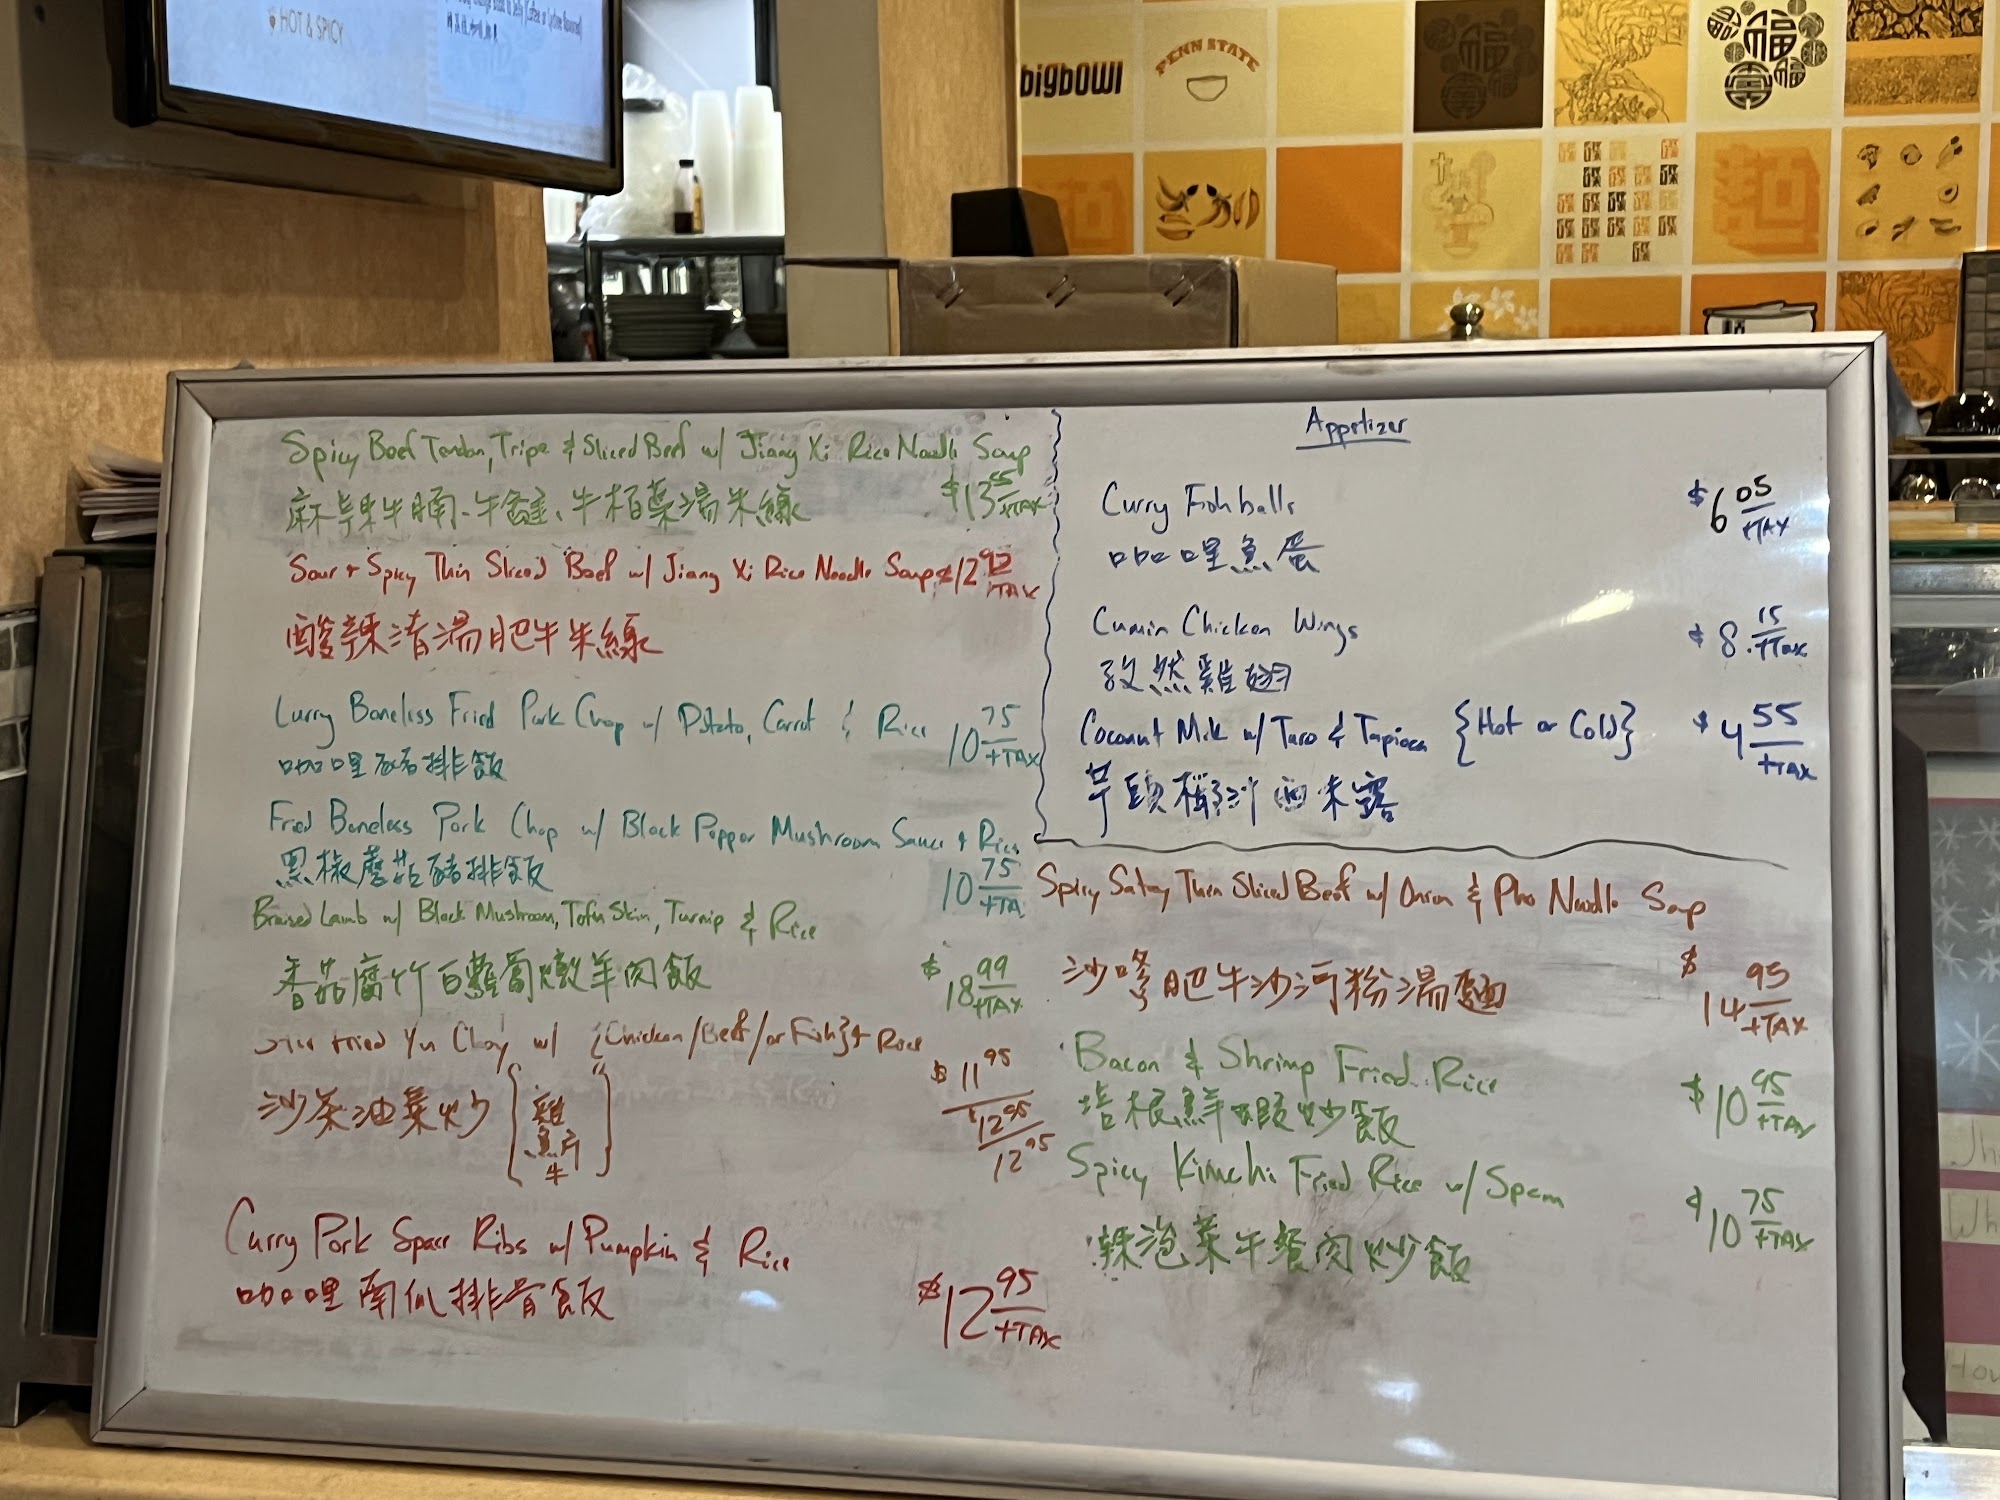 HOT & SPICY
bigbowl
PENN STATE
福
Spicy Beef Tendon, Tripe & Sliced Beef w/ Jiang Xi Rice Noodle Soup
麻辣牛腩、牛筋、牛栢葉湯米線
$13.55 +TAX
Sour + Spicy Thin Sliced Beef w/ Jiang Xi Rice Noodle Soup $12.92 +TAX
酸辣清湯肥牛米線
Curry Boneless Fried Pork Chop w/ Potato, Carrot & Rice 10.75 +TAX
咖哩豬排飯
Fried Boneless Pork Chop w/ Black Pepper Mushroom Sauce + Rice
黑椒蘑菇豬排飯
10.75 +TA
Braised Lamb w/ Black Mushroom, Tofu Skin, Turnip & Rice
香菇腐竹白蘿蔔燉羊肉飯
$18.99 +TAX
Stir Fried Yu Choy w/ {Chicken/Beef/or Fish} + Rice
沙茶油菜炒 {雞 魚片 牛}
$11.95
$12.95
12.95
Curry Pork Spare Ribs w/ Pumpkin & Rice
咖哩南瓜排骨飯
$12.95 +TAX
Appetizer
Curry Fishballs $6.05 +TAX
咖哩魚蛋
Cumin Chicken Wings $8.15 +TAX
孜然雞翅
Coconut Milk w/ Taro & Tapioca {Hot or Cold} $4.55 +TAX
芋頭椰汁西米露
Spicy Satay Thin Sliced Beef w/ Onion & Pho Noodle Soup
沙嗲肥牛沙河粉湯麵
$14.95 +TAX
Bacon & Shrimp Fried Rice
培根鮮蝦炒飯
$10.95 +TAX
Spicy Kimchi Fried Rice w/ Spam
辣泡菜午餐肉炒飯
$10.75 +TAX